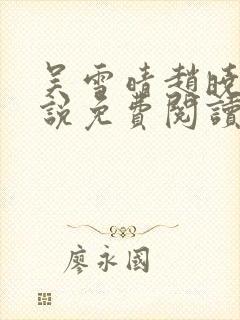 吴雪晴趙曉
說免費閱讀
廖永國